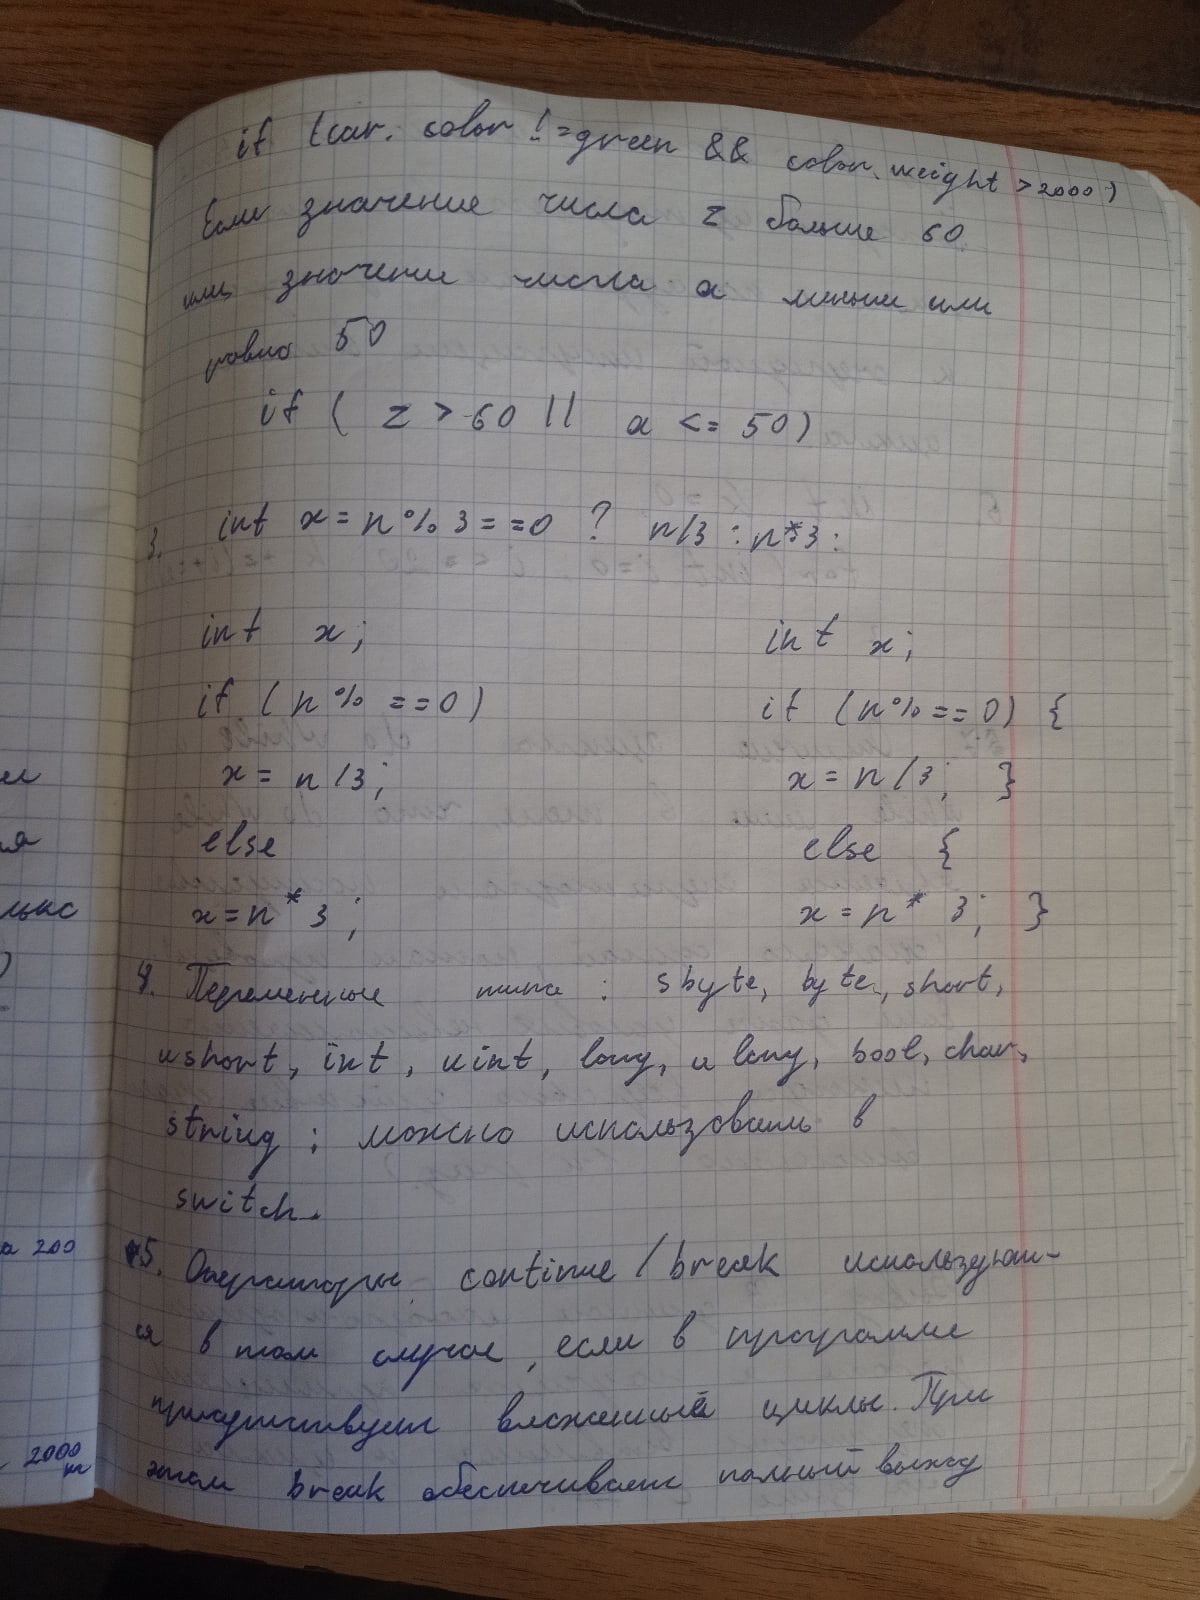 if (car. color != green && color. weight > 2000)
Если значение числа z больше 60
или значение числа a меньше или
равно 50
if ( z > 60 || a <= 50)
3. int x = n % 3 == 0 ? n/3 : n*3 :
int x; int x;
if (n % == 0) if (n % == 0) {
x = n / 3; x = n / 3; }
else else {
x = n * 3; x = n * 3; }
4. Переменные типа : sbyte, byte, short,
ushort, int, uint, long, u long, bool, char,
string ; можно использовать в
switch.
5. Операторы continue / break используют-
ся в том случае, если в программе
присутствует вложенный циклы. При
этом break обеспечивает полный выход
ля
лькс
)
а 200
2000
кг